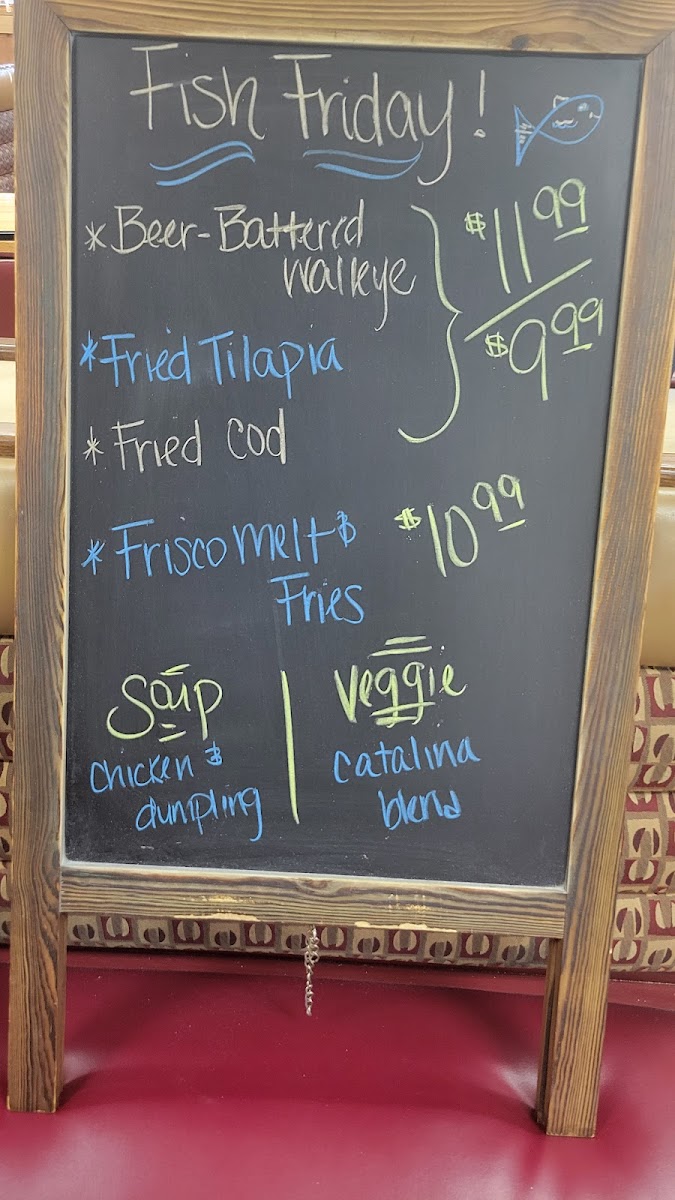 Fish Friday!
*Beer-Battered
walleye
$11.99
$9.99
*Fried Tilapia
*Fried Cod
*Frisco Melt &
Fries
$10.99
Soup
chicken &
dumpling
Veggie
catalina
blend